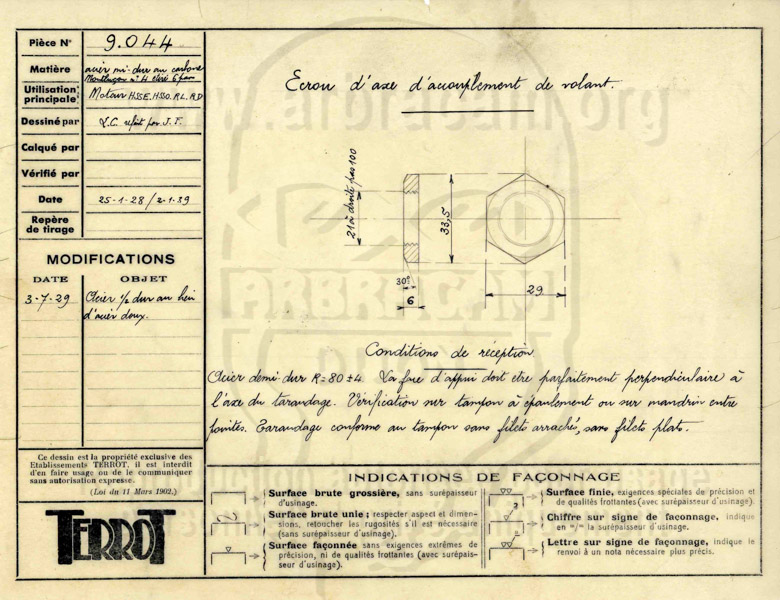 Pièce N° 9.044
Matière acier mi-dur au carbone
Montluçon n° 4 étiré 6 pans
Utilisation principale Moteur HSSE. HSSO. RL. RD
Dessiné par L.C. refait par J.F.
Calqué par
Vérifié par
Date 25-1-28 / 2-1-39
Repère de tirage
MODIFICATIONS
DATE OBJET
3-7-29 Acier ½ dur au lieu
d'acier doux.
Ce dessin est la propriété exclusive des
Etablissements TERROT, il est interdit
d'en faire usage ou de le communiquer
sans autorisation expresse.
(Loi du 11 Mars 1902.)
TERROT
Ecrou d'axe d'accouplement de volant.
21 à droite pas 100
33,5
30°
6
29
Conditions de réception
Acier demi dur R=80±4. La face d'appui doit etre parfaitement perpendiculaire à
l'axe du taraudage. Vérification sur tampon à épaulement ou sur mandrin entre
pointes. Taraudage conforme au tampon sans filets arrachés, sans filets plats.
INDICATIONS DE FAÇONNAGE
Surface brute grossière, sans surépaisseur
d'usinage.
Surface brute unie ; respecter aspect et dimen-
sions, retoucher les rugosités s'il est nécessaire
(sans surépaisseur d'usinage).
Surface façonnée sans exigences extrêmes de
précision, ni de qualités frottantes (avec surépais-
seur d'usinage).
Surface finie, exigences spéciales de précision et
de qualités frottantes (avec surépaisseur d'usinage).
Chiffre sur signe de façonnage, indique
en "/= la surépaisseur d'usinage.
Lettre sur signe de façonnage, indique le
renvoi à un nota nécessaire plus précis.
www.arbracam.org
ARBRACAM